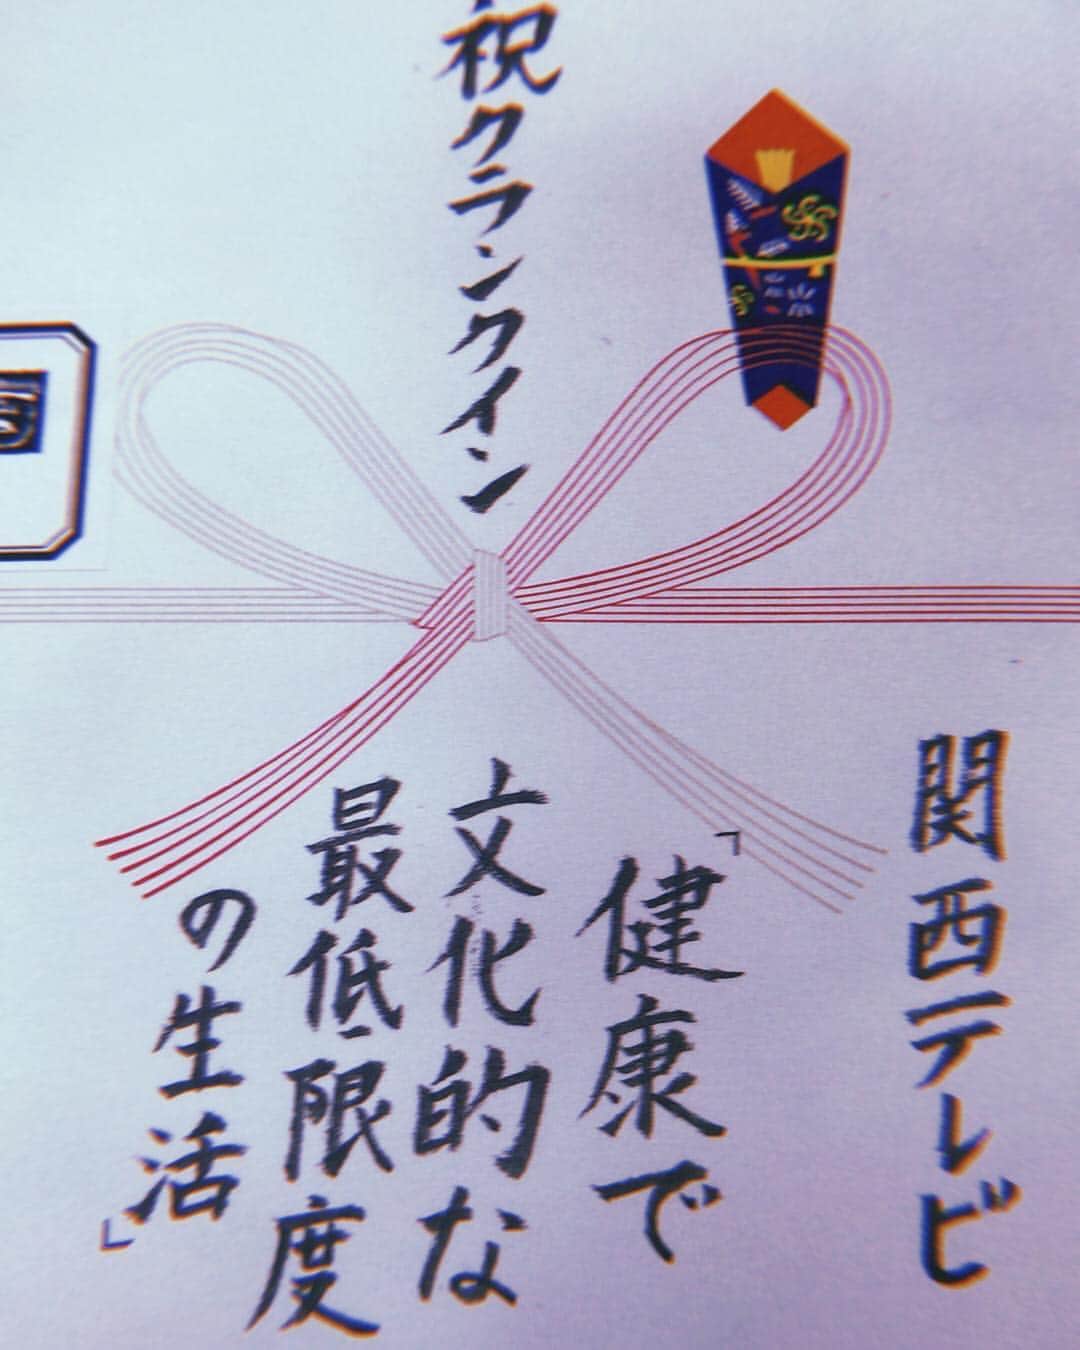 祝クランクイン
関西テレビ
「健康で
文化的な
最低限度
の生活」